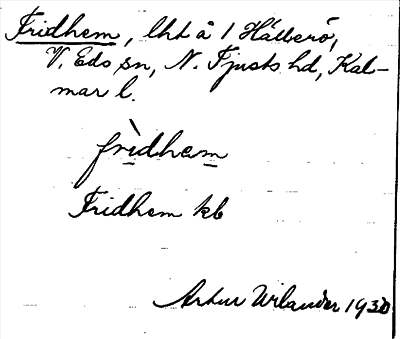 Fridhem, lht å 1 Hälberö,
V. Eds sn, N. Tjusts hd, Kal-
mar l.
frìdhem
Fridhem kb
Arthur Wilander 1930